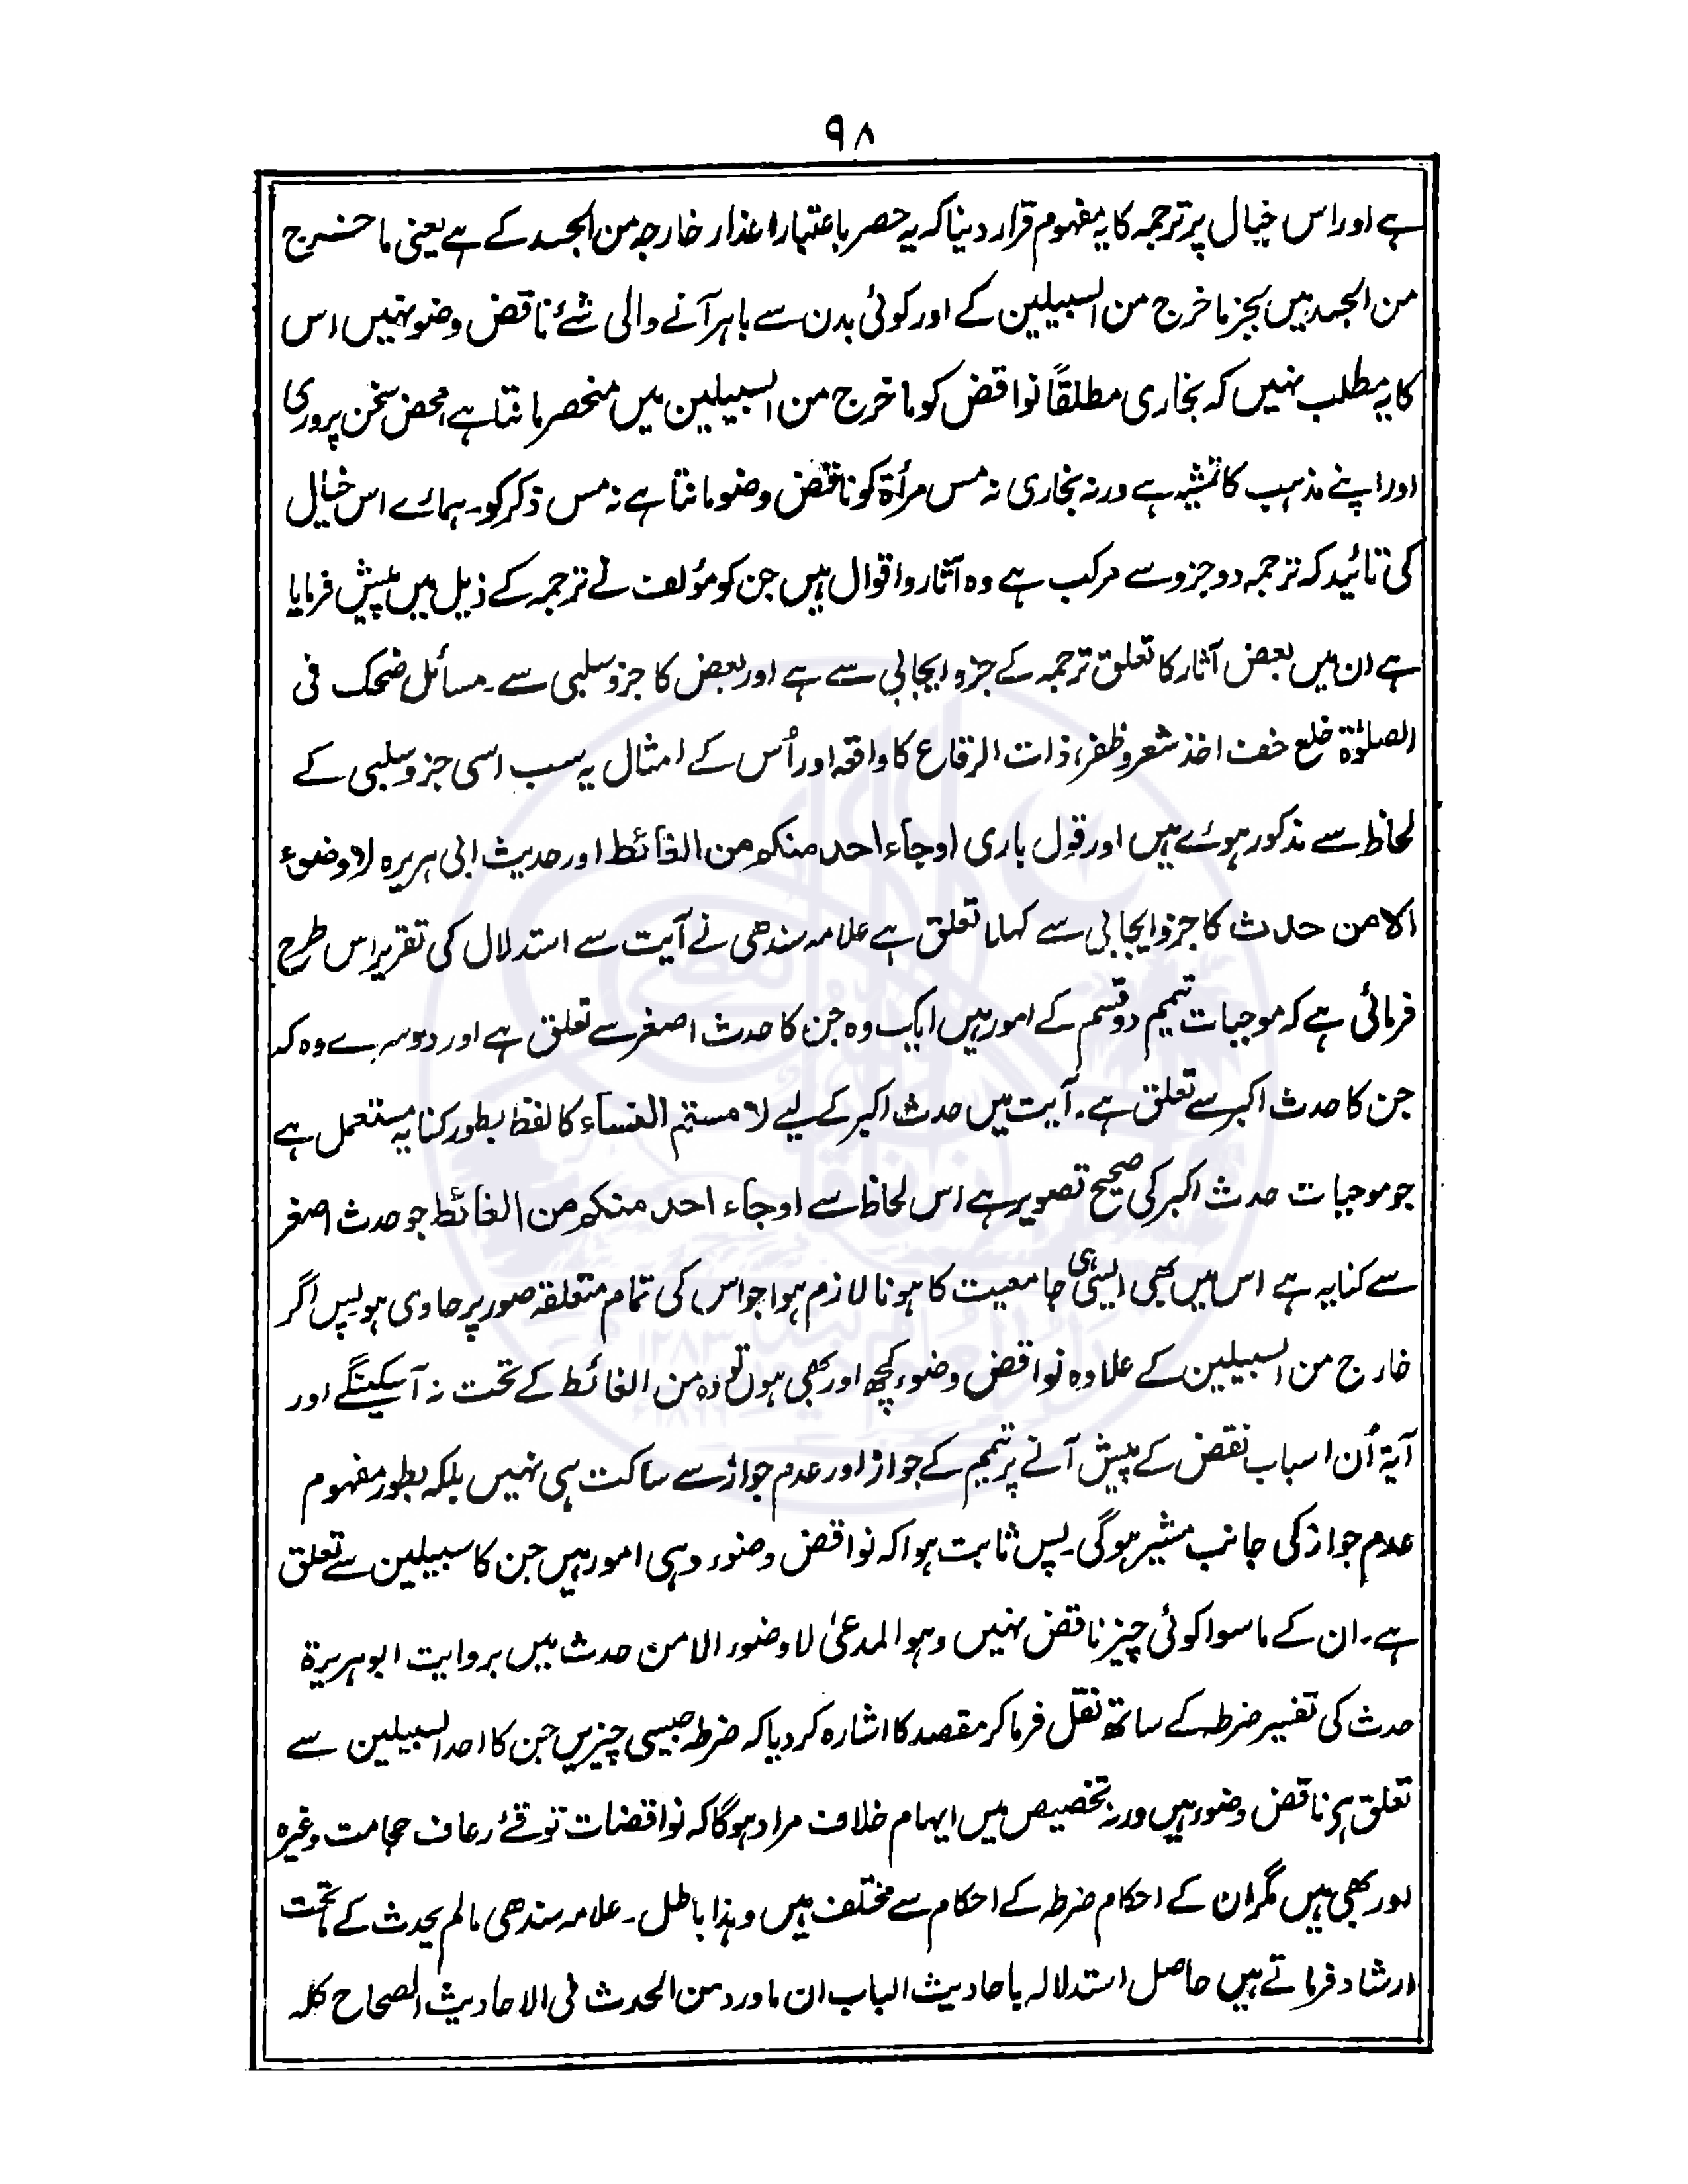 ۹۸
ہے اور اس خیال پر ترجمہ کا یہ مفہوم قرار دینا کہ یہ حصر باعتبار اعذار خارجہ من الجسد کے ہے یعنی ما خرج
من الجسد میں بجز ما خرج من السبیلین کے اور کوئی بدن سے باہر آنے والی شئے ناقض وضو نہیں اس
کا یہ مطلب نہیں کہ بخاری مطلقاً نواقض کو ما خرج من السبیلین میں منحصر مانتا ہے محض سخن پروری
اور اپنے مذہب کا تمشیہ ہے ورنہ بخاری نہ مس مرأۃ کو ناقض وضو مانتا ہے نہ مس ذکر کو۔ ہمارے اس خیال
کی تائید کہ ترجمہ دو جزو سے مرکب ہے وہ آثار واقوال ہیں جن کو مؤلف نے ترجمہ کے ذیل میں پیش فرمایا
ہے ان میں بعض آثار کا تعلق ترجمہ کے جزو ایجابی سے ہے اور بعض کا جزو سلبی سے۔ مسائل ضحک فی
الصلوٰۃ خلع خف اخذ شعر وظفر، ذات الرقاع کا واقعہ اور اُس کے امثال یہ سب اسی جزو سلبی کے
لحاظ سے مذکور ہوئے ہیں اور قول باری اوجاء احد منکم من الغائط اور حدیث ابی ہریرہ لا وضوء
الا من حدث کا جزو ایجابی سے کھلا تعلق ہے علامہ سندھی نے آیت سے استدلال کی تقریر اس طرح
فرمائی ہے کہ موجبات تیمم دو قسم کے امور ہیں ایک وہ جن کا حدث اصغر سے تعلق ہے اور دوسرے وہ کہ
جن کا حدث اکبر سے تعلق ہے۔ آیت میں حدث اکبر کے لیے لا مستم النساء کا لفظ بطور کنایہ مستعمل ہے
جو موجبات حدث اکبر کی صحیح تصویر ہے اس لحاظ سے اوجاء احد منکم من الغائط جو حدث اصغر
سے کنایہ ہے اس میں بھی ایسی ہی جامعیت کا ہونا لازم ہوا جو اس کی تمام متعلقہ صور پر حاوی ہو پس اگر
خارج من السبیلین کے علاوہ نواقض وضوء کچھ اور بھی ہوں تو وہ من الغائط کے تحت نہ آ سکینگے اور
آیۃ اُن اسباب نقض کے پیش آنے پر تیمم کے جواز اور عدم جواز سے ساکت ہی نہیں بلکہ بطور مفہوم
عدم جواز کی جانب مشیر ہوگی۔ پس ثابت ہوا کہ نواقض وضوء وہی امور ہیں جن کا سبیلین سے تعلق
ہے۔ ان کے ماسوا کوئی چیز ناقض نہیں وہو المدعیٰ لا وضوء الا من حدث میں بروایت ابوہریرۃ
حدث کی تفسیر ضرطہ کے ساتھ نقل فرما کر مقصد کا اشارہ کر دیا کہ ضرطہ جیسی چیزیں جن کا احد السبیلین سے
تعلق ہی ناقض وضوء ہیں ورنہ تخصیص میں ایہام خلاف مراد ہوگا کہ نواقضات تو قئے رعاف حجامت وغیرہ
اور بھی ہیں مگر ان کے احکام ضرطہ کے احکام سے مختلف ہیں وہذا باطل۔ علامہ سندھی مالم یحدث کے تحت
ارشاد فرماتے ہیں حاصل استدلالہ باحادیث الباب ان ما ورد من الحدث فی الاحادیث الصحاح کلہ